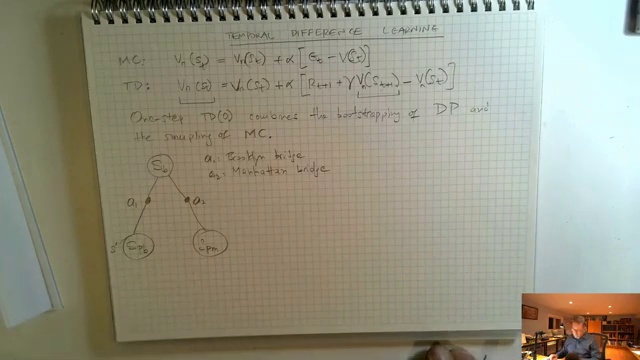 TEMPORAL DIFFERENCE LEARNING
MC: Vπ(St) = Vπ(St) + α [Gt - V(St)]
TD: Vπ(St) = Vπ(St) + α [Rt+1 + γVπ(St+1) - Vπ(St)]
One-step TD(0) combines the bootstrapping of DP and
the sampling of MC.
a1: Brooklyn bridge
a2: Manhattan bridge
a1
a2